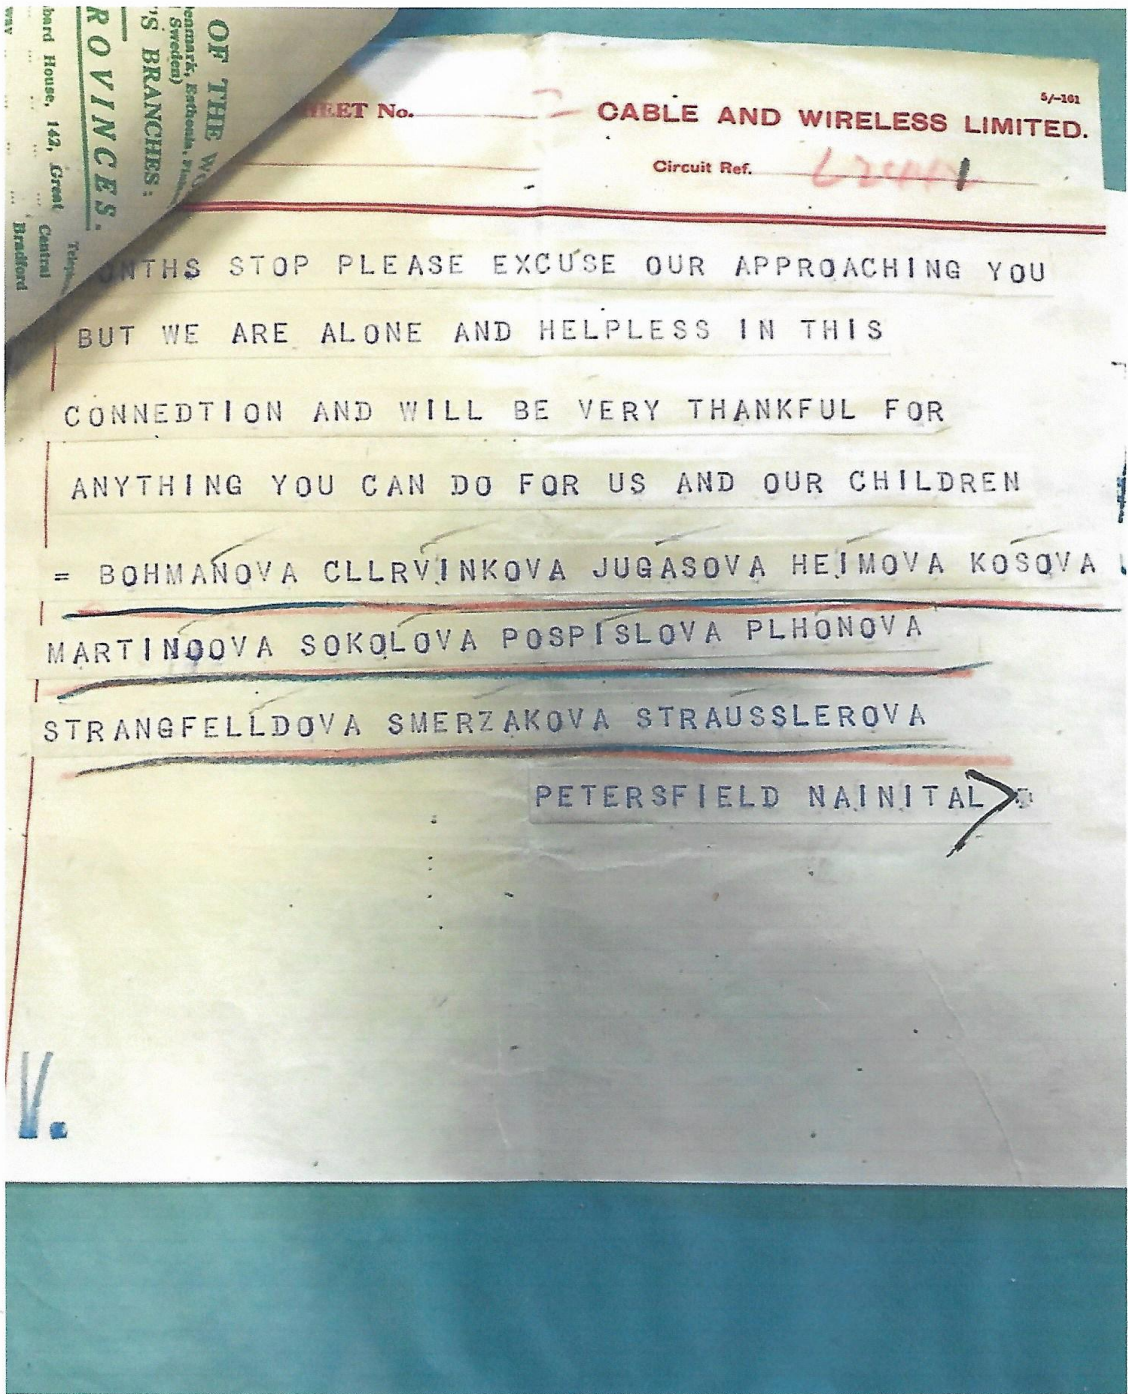 OF THE
Denmark, Esthonia,
Sweden)
'S BRANCHES:
ROVINCES.
bard House, 142, Great
Central
way
Bradford
EET No.
5/-161
CABLE AND WIRELESS LIMITED.
Circuit Ref.
ONTHS STOP PLEASE EXCUSE OUR APPROACHING YOU
BUT WE ARE ALONE AND HELPLESS IN THIS
CONNEDTION AND WILL BE VERY THANKFUL FOR
ANYTHING YOU CAN DO FOR US AND OUR CHILDREN
= BOHMANOVA CLLRVINKOVA JUGASOVA HEIMOVA KOSOVA
MARTINOOVA SOKOLOVA POSPISLOVA PLHONOVA
STRANGFELLDOVA SMERZAKOVA STRAUSSLEROVA
PETERSFIELD NAINITAL
V.